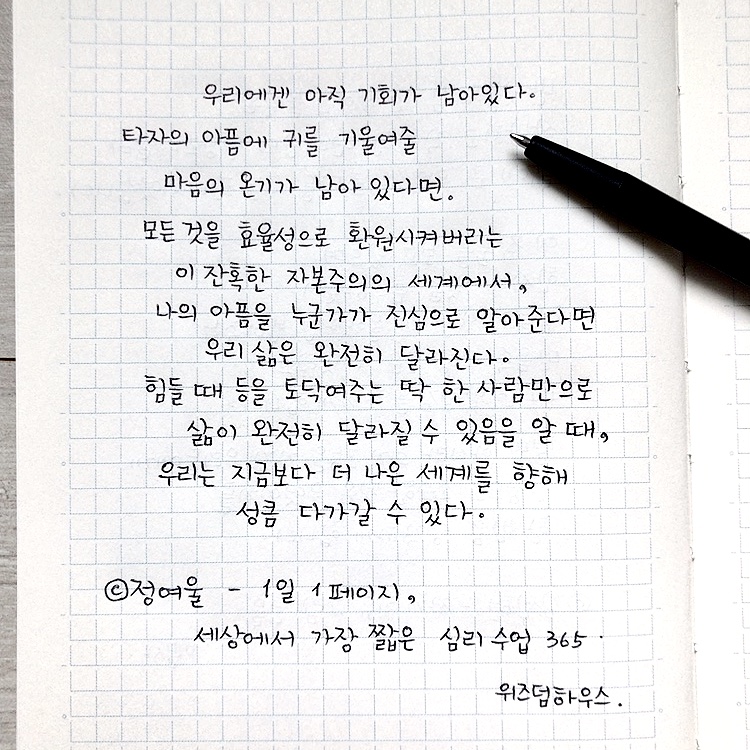 우리에겐 아직 기회가 남아있다.
타자의 아픔에 귀를 기울여줄
마음의 온기가 남아 있다면.
모든 것을 효율성으로 환원시켜버리는
이 잔혹한 자본주의의 세계에서,
나의 아픔을 누군가가 진심으로 알아준다면
우리 삶은 완전히 달라진다.
힘들 때 등을 토닥여주는 딱 한 사람만으로
삶이 완전히 달라질 수 있음을 알 때,
우리는 지금보다 더 나은 세계를 향해
성큼 다가갈 수 있다.
©정여울 - 1일 1페이지,
세상에서 가장 짧은 심리 수업 365.
위즈덤하우스.